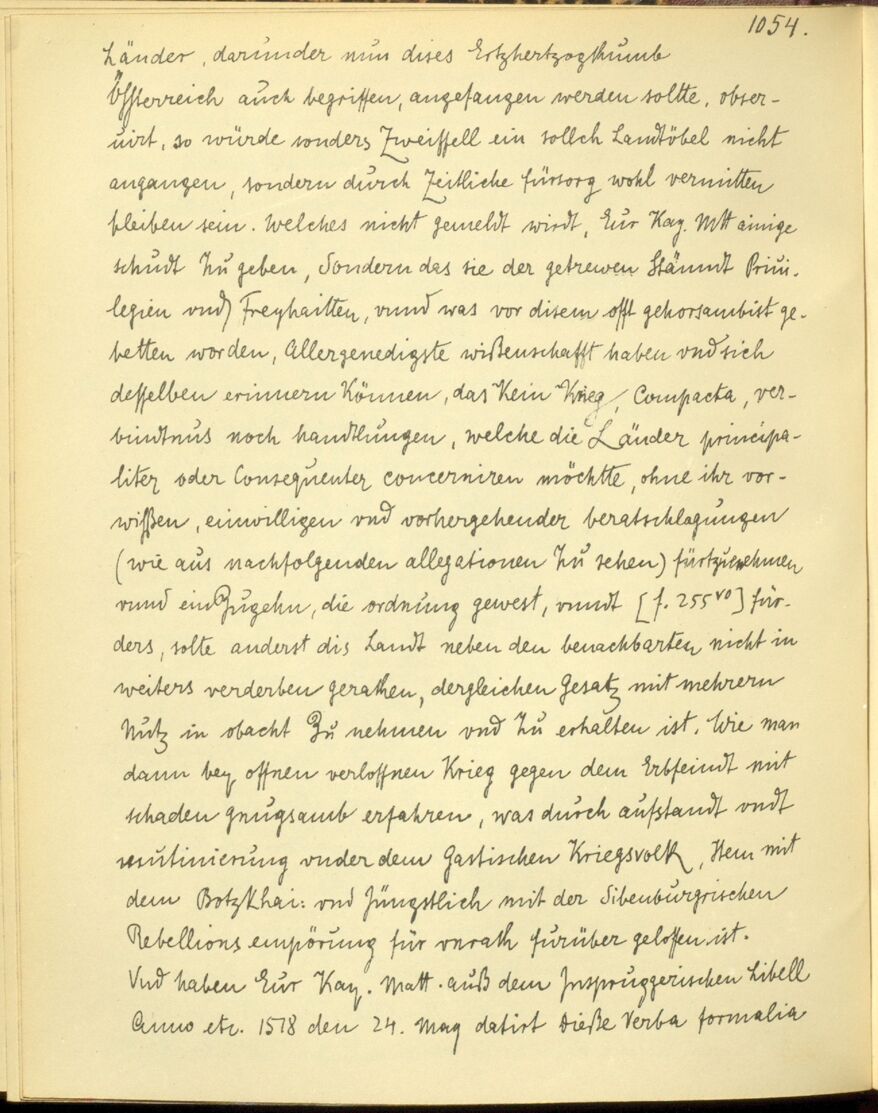 1054.
Länder, darunder nun dises Ertzhertzogthumb
Össterreich auch begriffen, angefangen werden sollte, obser-
uirt, so würde sonders Zweiffell ein sollch Landtöbel nicht
angangen, sondern durch Zeitliche fürsorg wohl vermitten
bleiben sein. Welches nicht gemeldt wirdt, Eur Kay. Mtt ainige
schudt zu geben, Sondern das sie der getrewen Stänndt Priui-
legien vnd Freyhaitten, vnnd was vor disem offt gehorsambist ge-
betten worden, Allergenedigste wißenschafft haben vnd sich
desselben erinnern Können, das Kein Krieg, Compacta, ver-
bindtnus noch handtlungen, welche die Länder principa-
liter oder Consequenter concerniren möchtte, ohne ihr vor-
wissen, einwilligen vnd vorhergehender beratschlagungen
(wie aus nachfolgenden allegationen zu sehen) fürtzunehmen
vnnd ein Zugehn, die ordnung gewest, vnndt [f. 255 vo] für-
ders, solte anderst dis Landt neben den benachbarten nicht in
weiters verderben gerathen, dergleichen Gesatz mit mehrern
Nutz in obacht Zu nehmen vnd zu erhalten ist. Wie man
dann bey offnen verloffnen Krieg gegen dem Erbfeindt mit
schaden gnugsamb erfahren, was durch aufstandt vndt
mutinierung vnder dem Gastischen Kriegsvolk, Item mit
dem Botzkhai: vnd Jüngstlich mit der Sibenburgrischen
Rebellions empörung für vnrath furüber geloffen ist.
Vnd haben Eur Kay. Matt. auß dem Jnspruggerischen Libell
Anno etc. 1518 den 24. May datirt Dieße Verba formalia